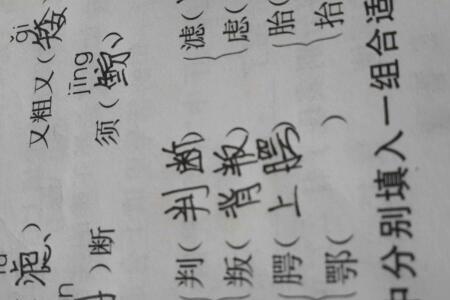 ǎi
又粗又(矮
jīng
)断 须(鲸、
判(判断) 滤(
叛(背叛) 虑(
腭(上腭) 胎(
鄂( ) 抬(
中分别填入一组合适